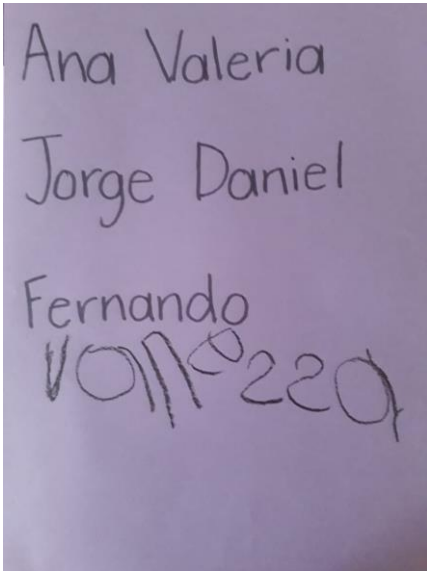 Ana Valeria
Jorge Daniel
Fernando